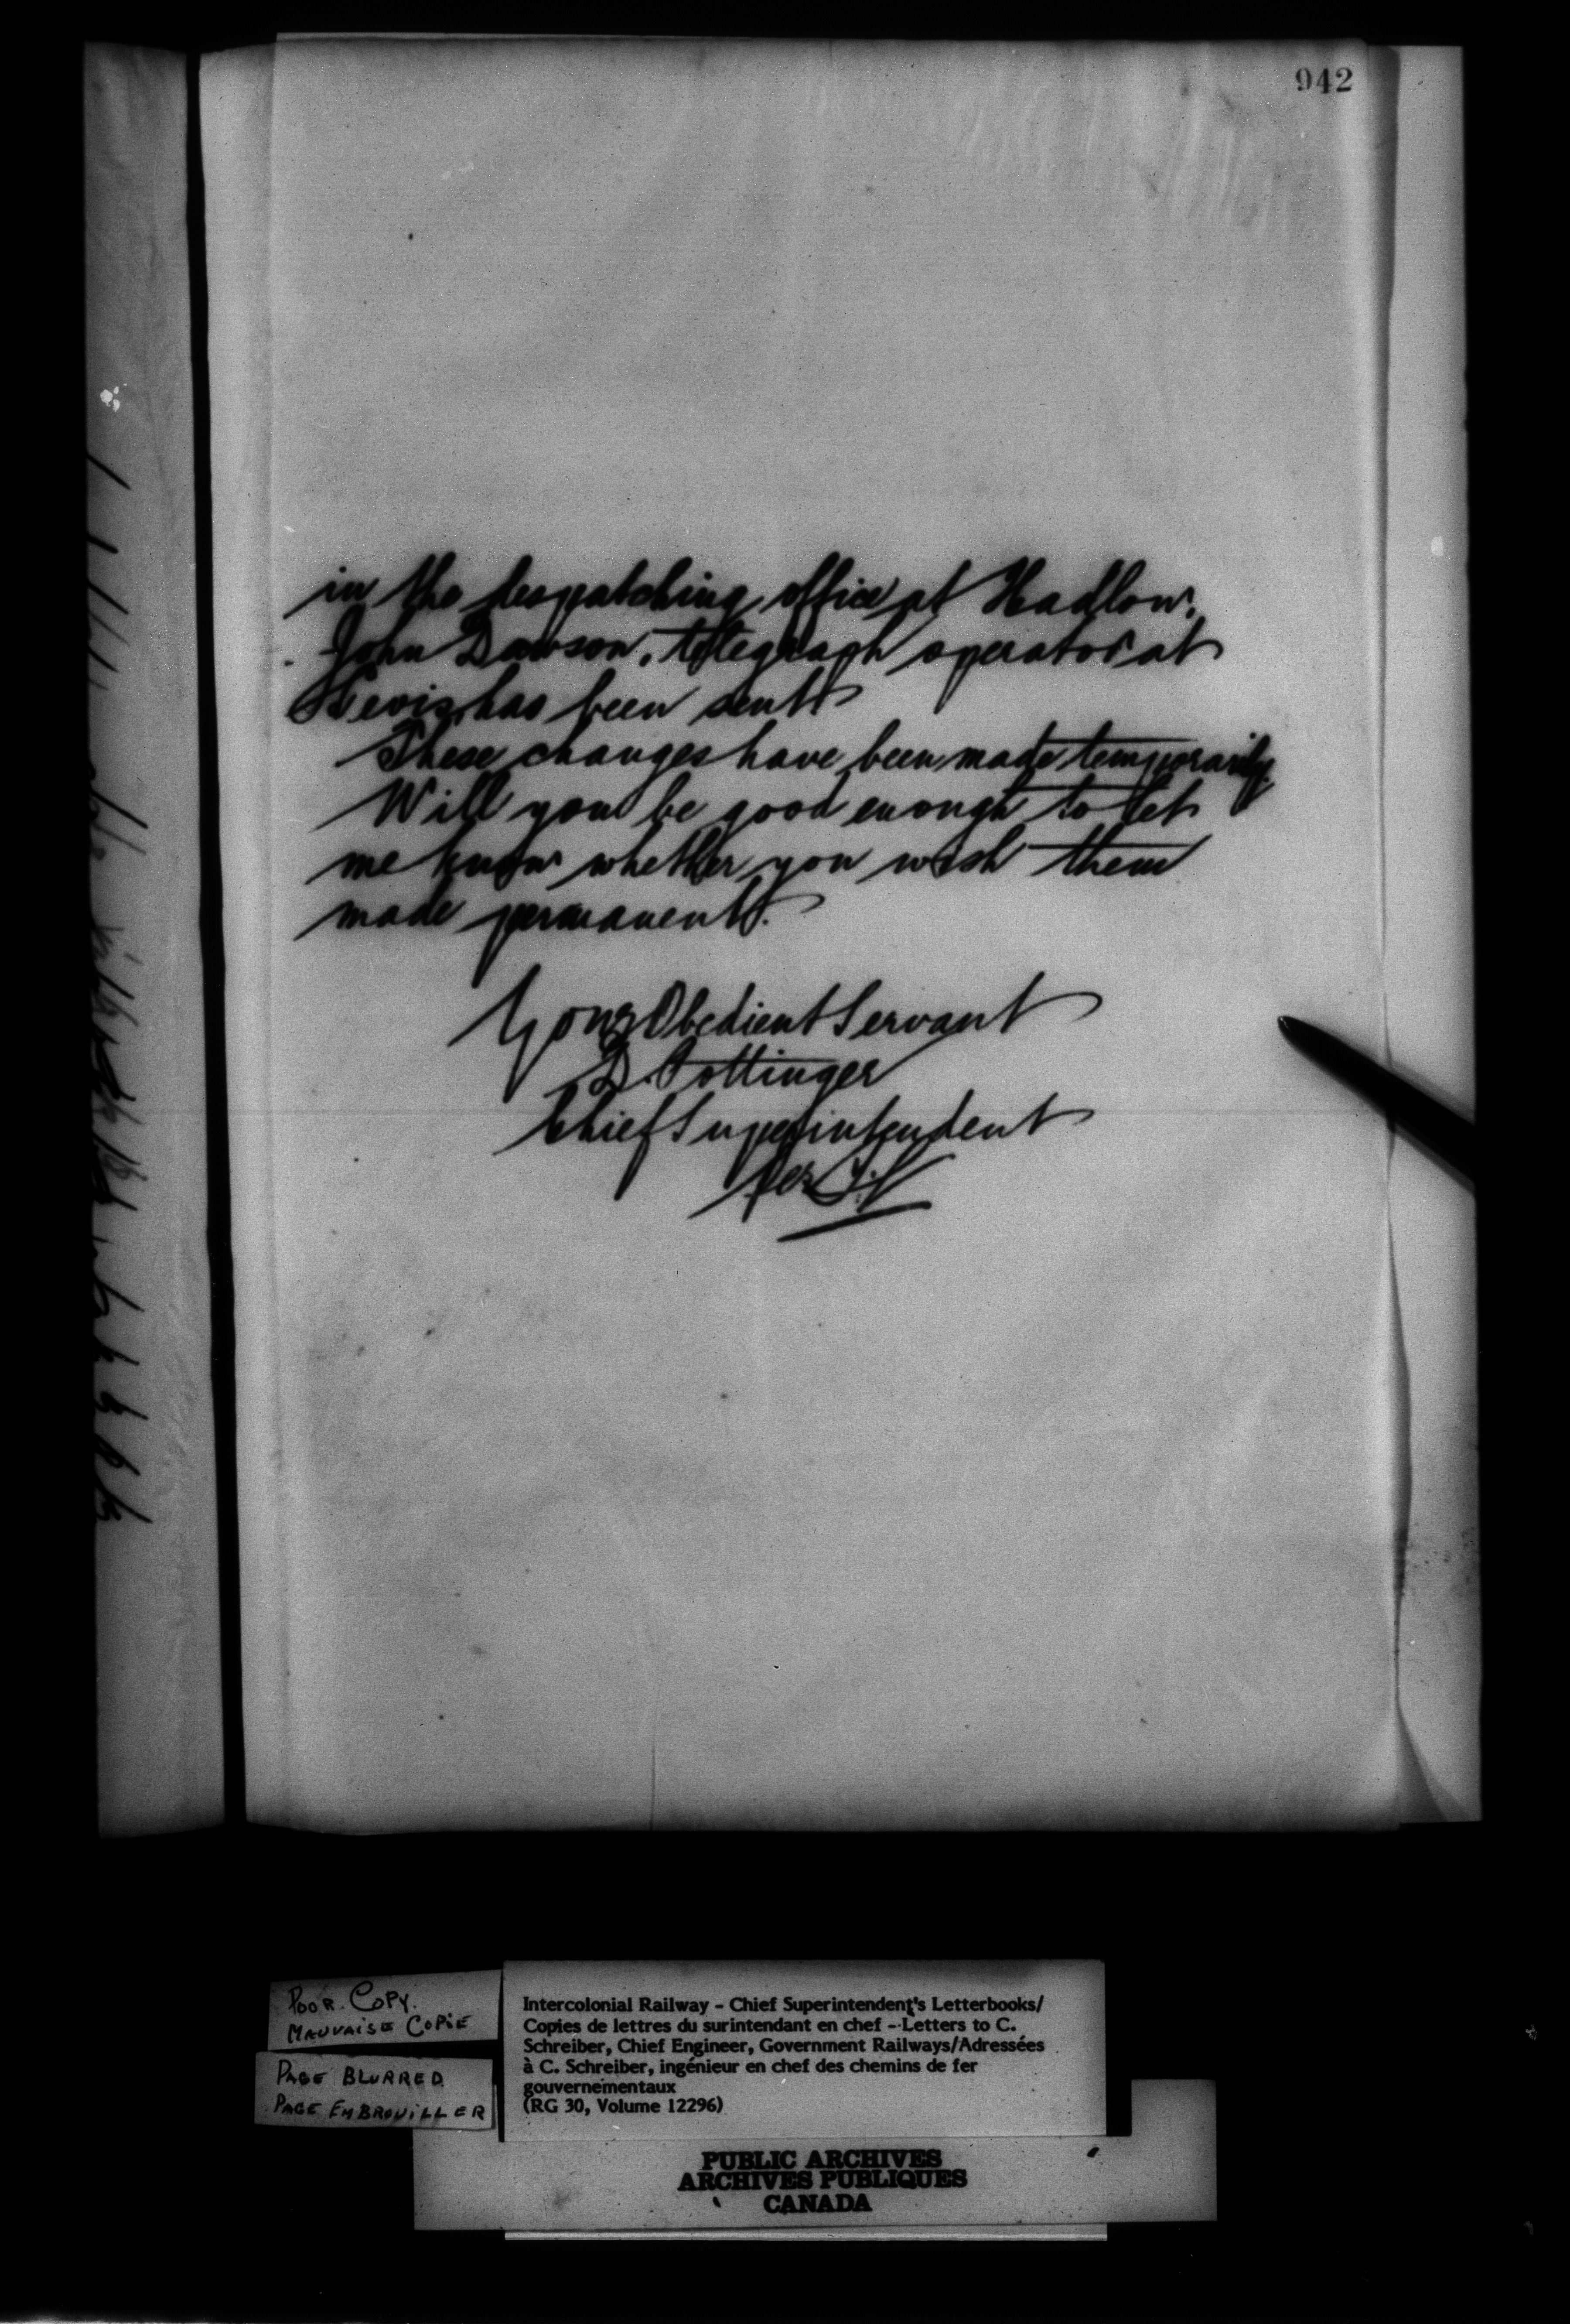 942
in the despatching office at Hadlow.
John Dawson, telegraph operator at
Levis, has been sent
These changes have been made temporarily.
Will you be good enough to let
me know whether you wish them
made permanent.
Your Obedient Servant
D. Pottinger
Chief Superintendent
Per
POOR COPY.
MAUVAISE COPIE
PAGE BLURRED
PAGE EMBROUILLER
Intercolonial Railway - Chief Superintendent's Letterbooks/
Copies de lettres du surintendant en chef - Letters to C.
Schreiber, Chief Engineer, Government Railways/Adressées
à C. Schreiber, ingénieur en chef des chemins de fer
gouvernementaux
(RG 30, Volume 12296)
PUBLIC ARCHIVES
ARCHIVES PUBLIQUES
CANADA